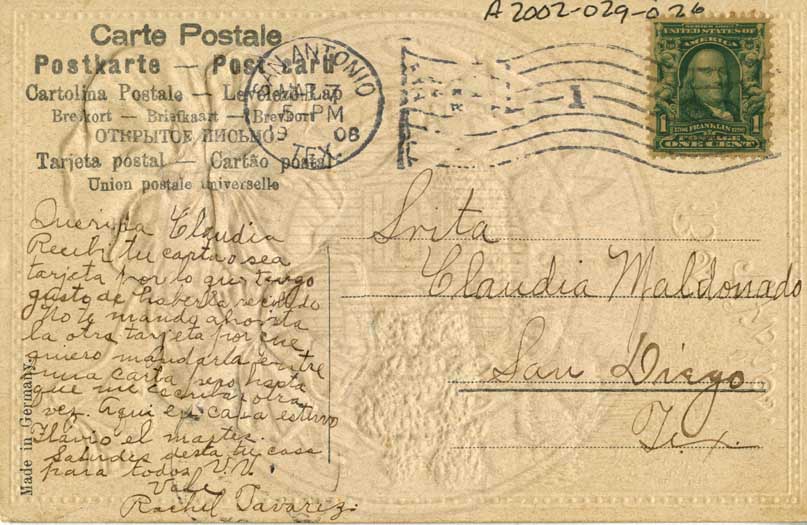 A2002-029-026
Carte Postale
Postkarte — Post card
Cartolina Postale — Levelező-Lap
Brefkort — Briefkaart — Brevkort
ОТКРЫТОЕ ПИСЬМО
Tarjeta postal — Cartão postal
Union postale universelle
SAN ANTONIO
5 PM
19 08
TEX.
1
SERIES 1902
UNITED STATES OF
AMERICA
1 FRANKLIN 1
POSTAGE
ONE CENT
Querida Claudia
Recibi tu carta o sea
tarjeta por lo que tengo
gusto de haberla recibido
No te mando ahorita
la otra tarjeta por que
quiero mandarla entre
una carta pero hasta
que me escriba otra
vez. Aqui en casa estuvo
Flavio el martes.
Saludes desta tu casa
para todos V.V.
Vale
Rachel Tavarez.
Srita
Claudia Maldonado
San Diego
Tex.
Made in Germany.